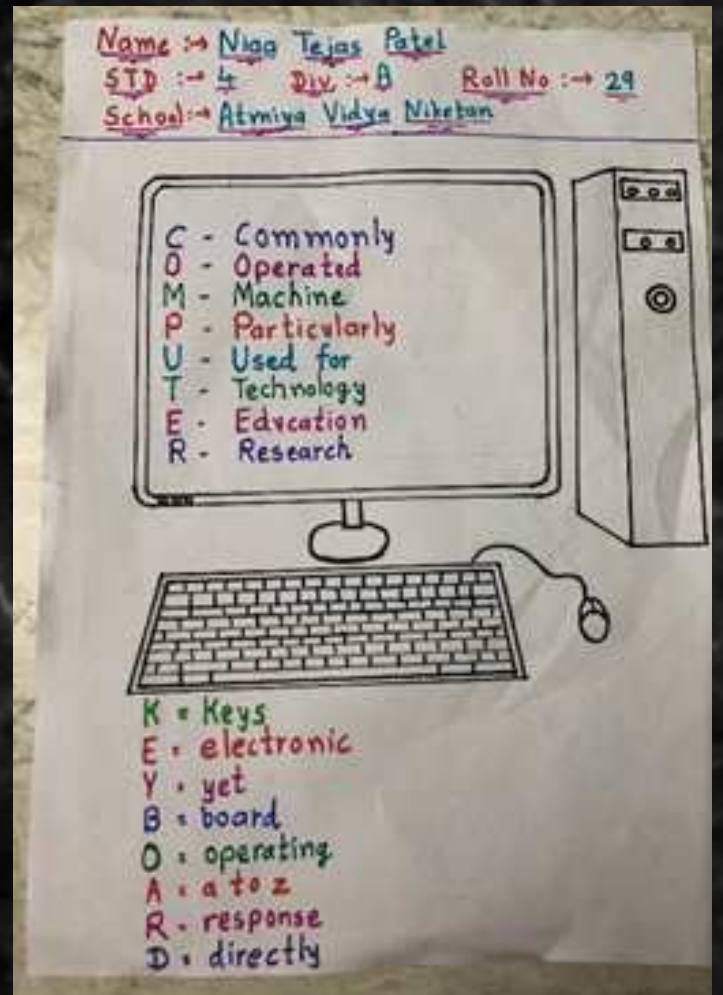 Name :→ Niaa Tejas Patel
STD :→ 4 Div :→ B Roll No :→ 29
School :→ Atmiya Vidya Niketan
C - Commonly
O - Operated
M - Machine
P - Particularly
U - Used for
T - Technology
E - Education
R - Research
K = Keys
E = electronic
Y = yet
B = board
O = operating
A = a to z
R = response
D = directly